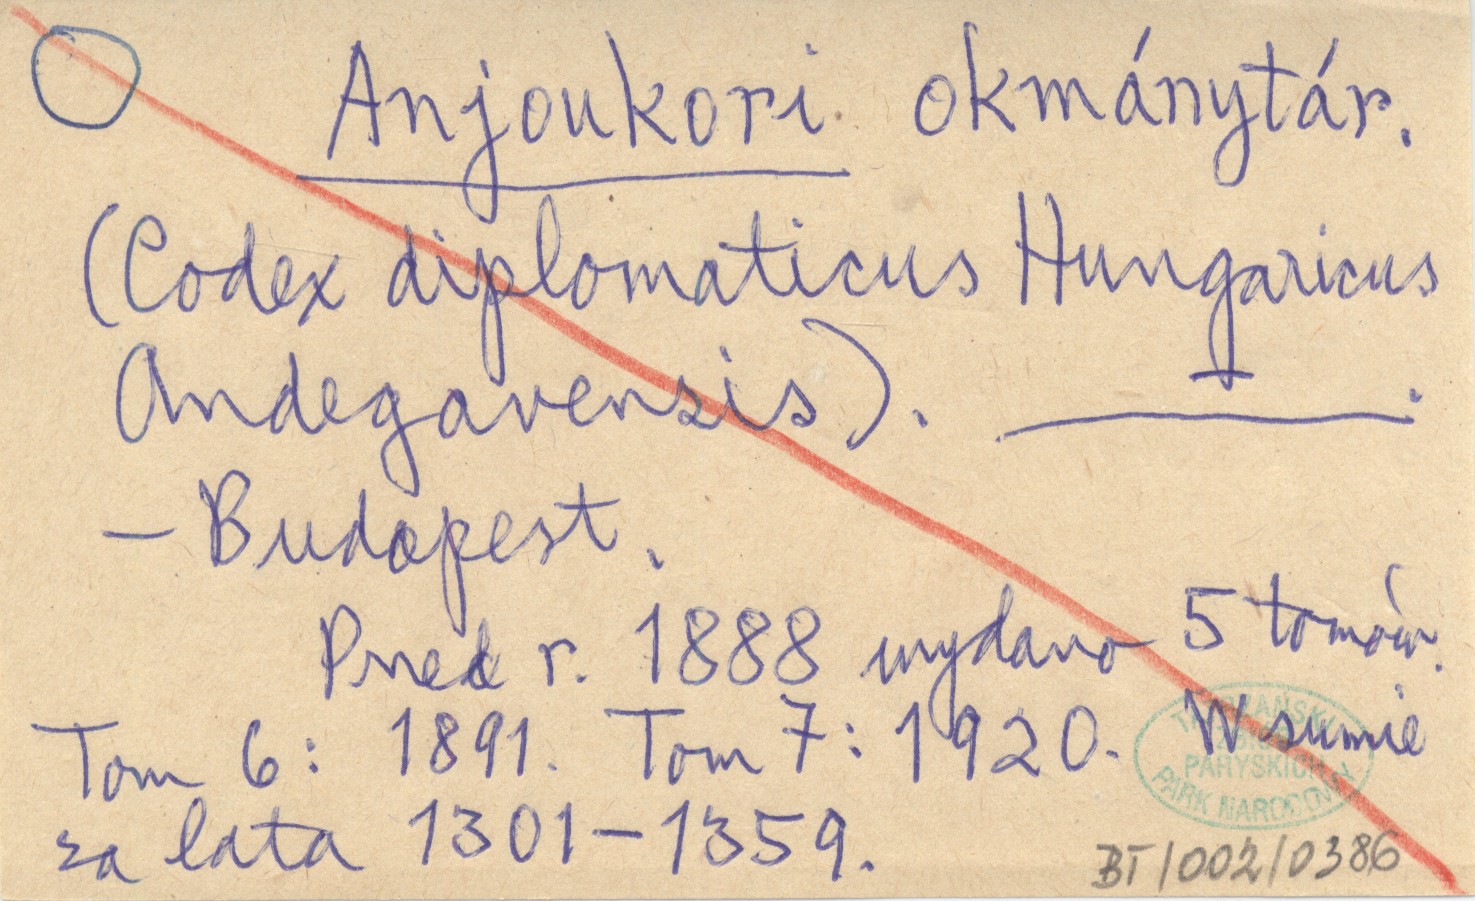 Anjoukori okmánytár.
(Codex diplomaticus Hungaricus
Andegavensis).
– Budapest.
Przed r. 1888 wydano 5 tomów.
Tom 6: 1891. Tom 7: 1920. W sumie
za lata 1301–1359.
PARYSKICH
PARK NARODOWY
BT/002/0386